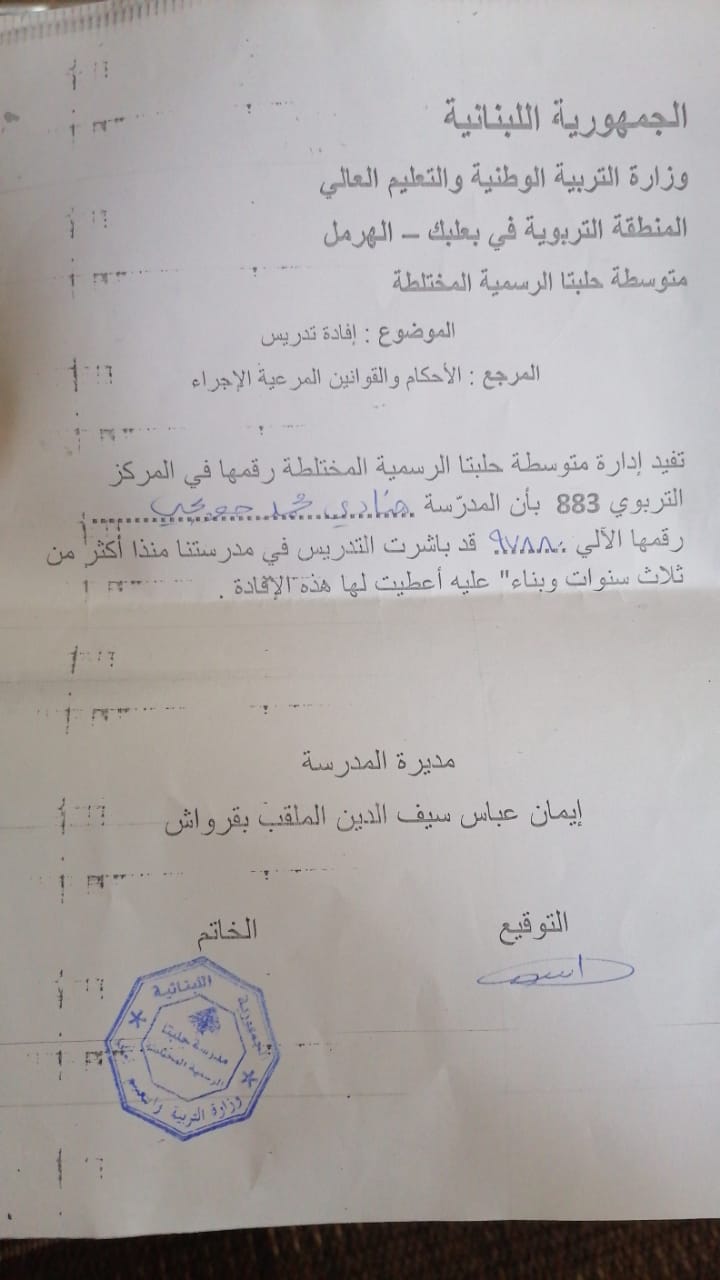 الجمهورية اللبنانية
وزارة التربية الوطنية والتعليم العالي
المنطقة التربوية في بعلبك – الهرمل
متوسطة حلبتا الرسمية المختلطة
الموضوع : إفادة تدريس
المرجع : الأحكام والقوانين المرعية الإجراء
تفيد إدارة متوسطة حلبتا الرسمية المختلطة رقمها في المركز
التربوي 883 بأن المدرّسة هنادي محمد
رقمها الآلي ٩٧٨٨٠ قد باشرت التدريس في مدرستنا منذا أكثر من
ثلاث سنوات وبناء" عليه أعطيت لها هذه الإفادة .
مديرة المدرسة
إيمان عباس سيف الدين الملقب بقرواش
التوقيع
الخاتم
الجمهورية اللبنانية
مدرسة حلبتا
الرسمية المختلطة
وزارة التربية والتعليم